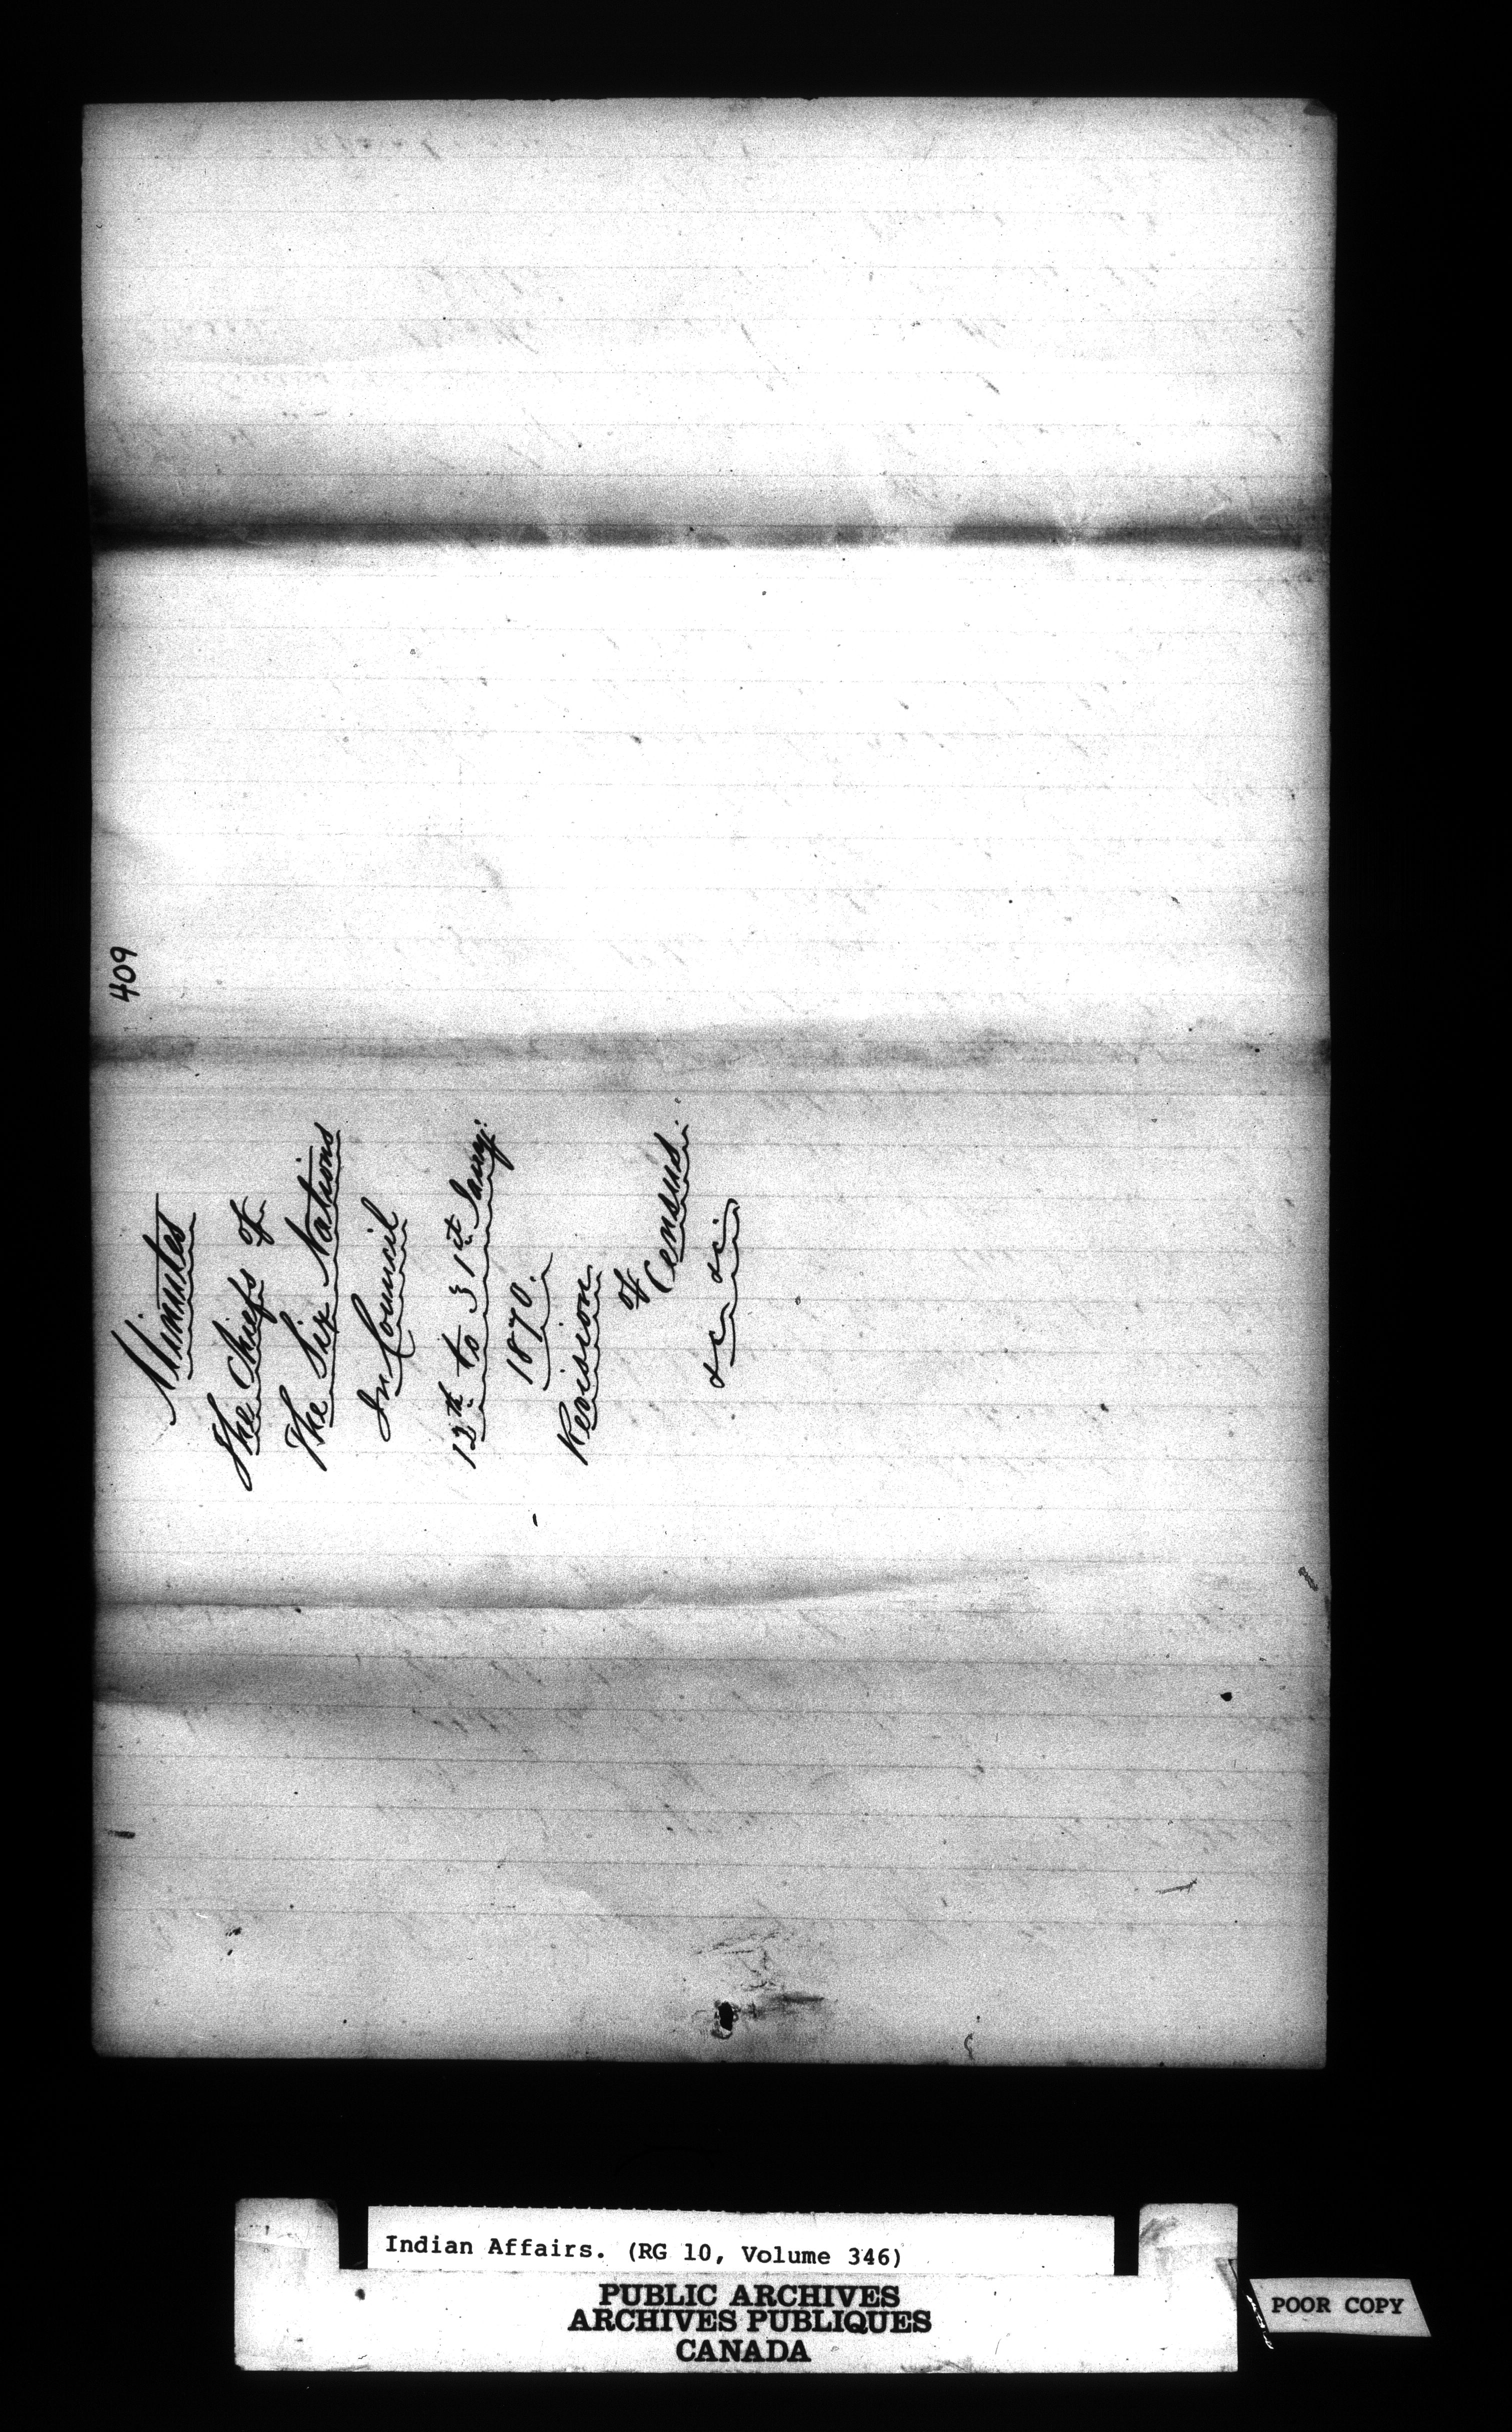 409
Minutes
The Chiefs of
The Six Nations
In Council
12th to 31st Jany.
1870.
Revision
of
Census.
&c &c
Indian Affairs. (RG 10, Volume 346)
PUBLIC ARCHIVES
ARCHIVES PUBLIQUES
CANADA
POOR COPY